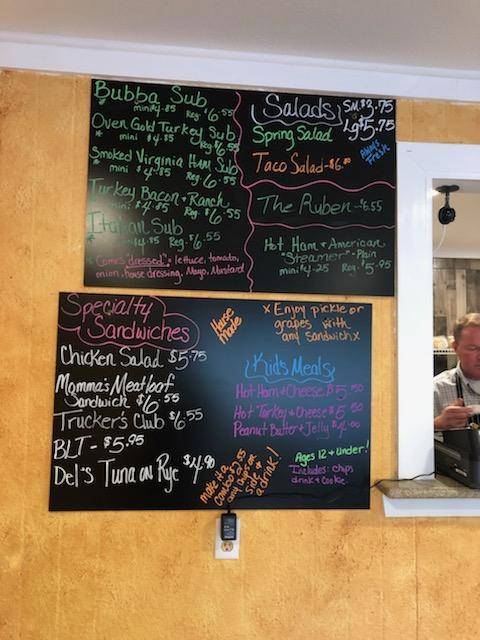 Bubba Sub
mini $4.85 Reg. $6.55
Oven Gold Turkey Sub
* mini $4.85 Reg $6.55
Smoked Virginia Ham Sub
* mini $4.85 Reg. $6.55
Turkey Bacon + Ranch
mini $4.85 Reg $6.55
Italian Sub
* $4.85 Reg. $6.55
* Comes "dressed": lettuce, tomato,
onion, house dressing, Mayo, Mustard
Salads Sm. $3.75
Lg $5.75
Spring Salad
Always Fresh
Taco Salad - $6.
The Ruben - $6.55
Hot Ham + American
"Steamer" - Plain
mini $4.25 Reg. $5.95
Specialty
Sandwiches
House
made
Chicken Salad $5.75
Momma's Meatloaf
Sandwich $6.55
Trucker's Club $6.55
BLT - $5.95
Del's Tuna on Rye $4.90
x Enjoy pickle or
grapes with
any sandwich x
Kid's Meals
Hot Ham + Cheese $5.50
Hot Turkey + Cheese $5.50
Peanut Butter + Jelly $4.00
Ages 12 + under!
Includes: chips
drink + cookie
make it a
combo
any chips or
side +
a drink!